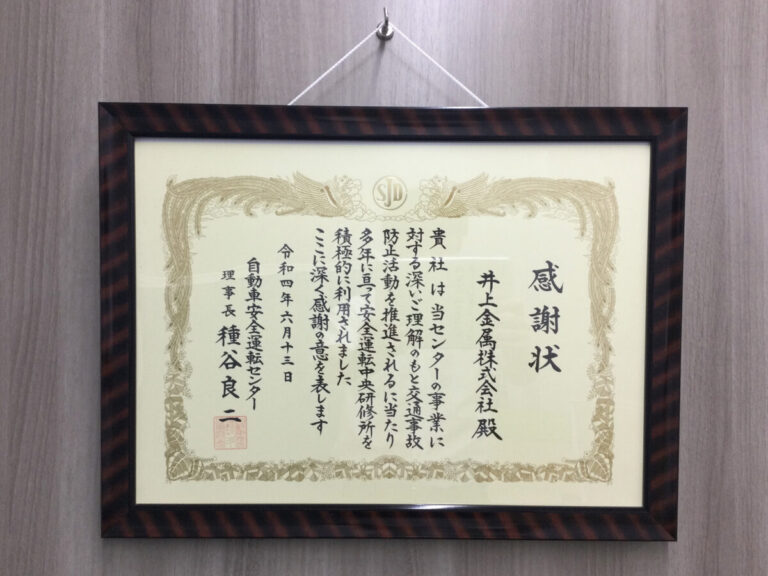 SJD
感謝状
井上金属株式会社 殿
貴社は当センターの事業に
対する深いご理解のもと交通事故
防止活動を推進されるに当たり
多年に亘って安全運転中央研修所を
積極的に利用されました
ここに深く感謝の意を表します
令和四年六月十三日
自動車安全運転センター
理事長 種谷良二